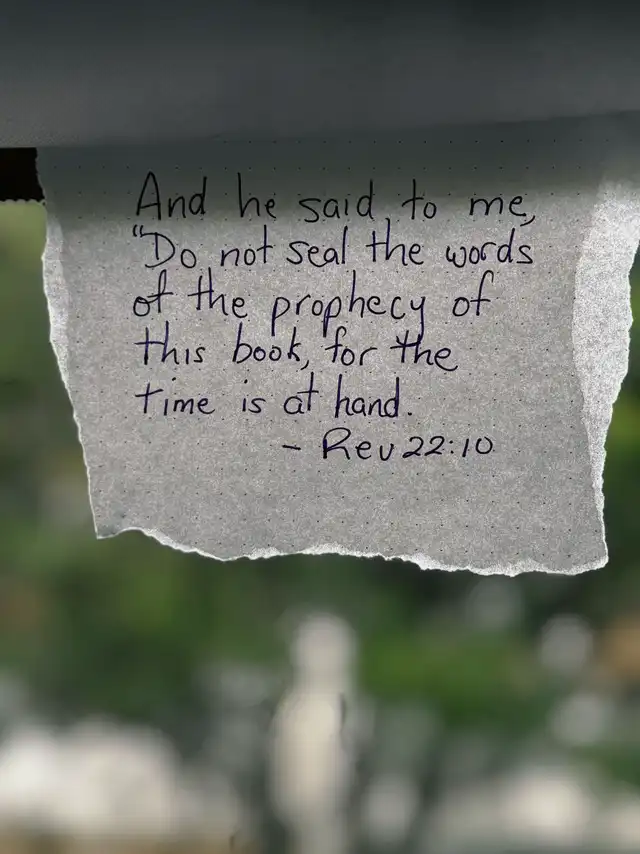 And he said to me,
"Do not seal the words
of the prophecy of
this book, for the
time is at hand.
- Rev 22:10